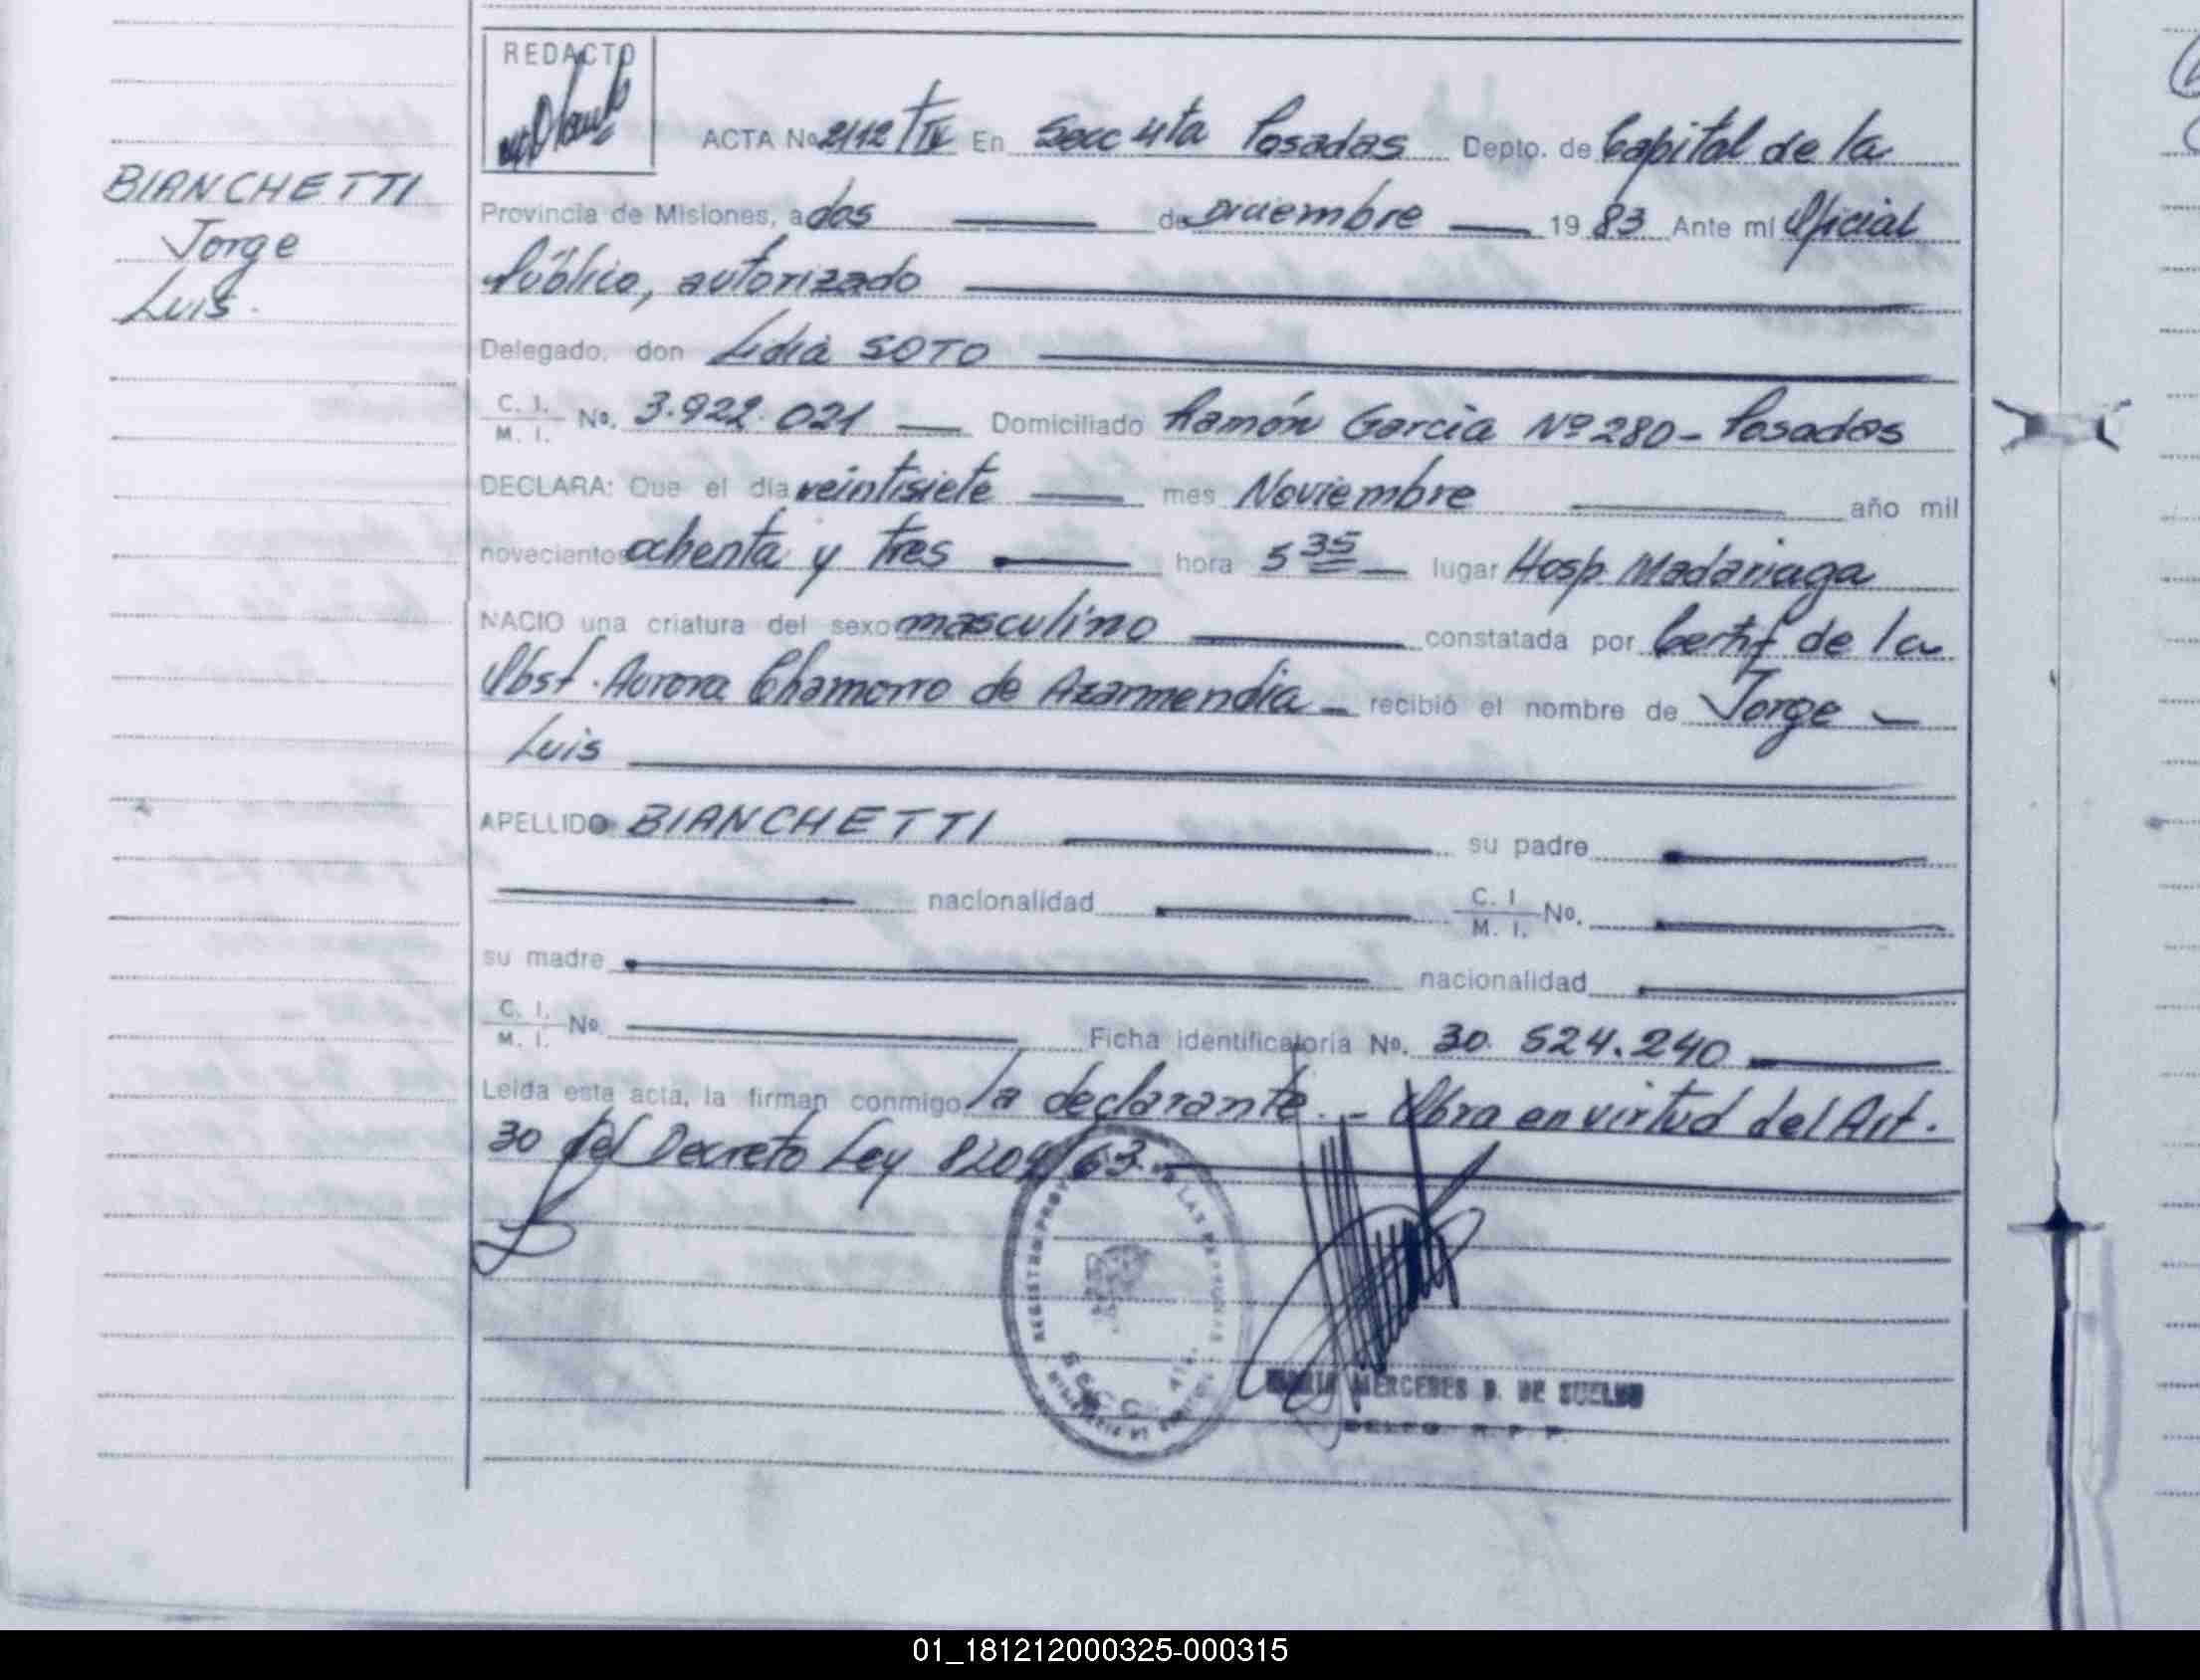 REDACTO
ACTA No 2112/IV En Secc 4ta Posadas Depto. de Capital de la
BIANCHETTI
Jorge
Luis.
Provincia de Misiones, a dos de Diciembre 19 83 Ante mi Oficial
Público, autorizado
Delegado, don Lidia SOTO
C. I.
M. I. No. 3.922.021 Domiciliado Ramón Garcia Nº 280 - Posadas
DECLARA: Que el día veintisiete mes Noviembre año mil
novecientos ochenta y tres hora 5 35 lugar Hosp. Madariaga
NACIO una criatura del sexo masculino constatada por Certif de la
Obst. Aurora Chamorro de Azarmendia - recibió el nombre de Jorge -
Luis
APELLIDO BIANCHETTI su padre
nacionalidad C. I.
M. I. No.
su madre nacionalidad
C. I.
M. I. No. Ficha identificatoria No. 30. 524.240
Leida esta acta, la firman conmigo la declarante. - Obra en virtud del Art.
30 del Decreto Ley 8204/63.-
SECC. 4ta.
MARIA MERCEDES D. DE SUELDO
DELEG. R. P. P.
01_181212000325-000315